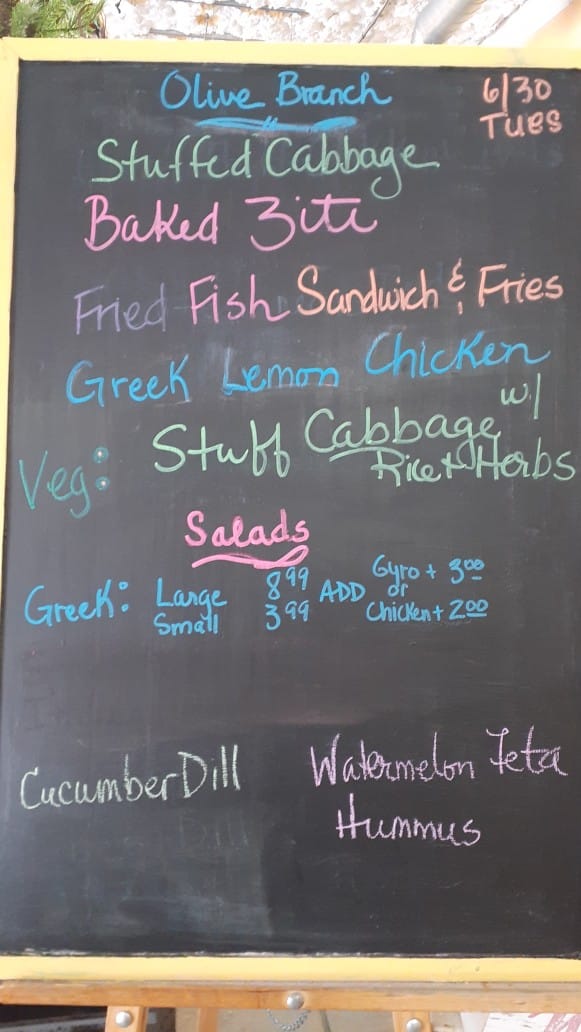 Olive Branch
6/30
TUES
Stuffed Cabbage
Baked Ziti
Fried Fish Sandwich & Fries
Greek Lemon Chicken
Veg: Stuff Cabbage w/
Rice + Herbs
Salads
Greek: Large 8.99 ADD Gyro + 3.00
or
Small 3.99 Chicken + 2.00
Cucumber Dill
Watermelon Feta
Hummus